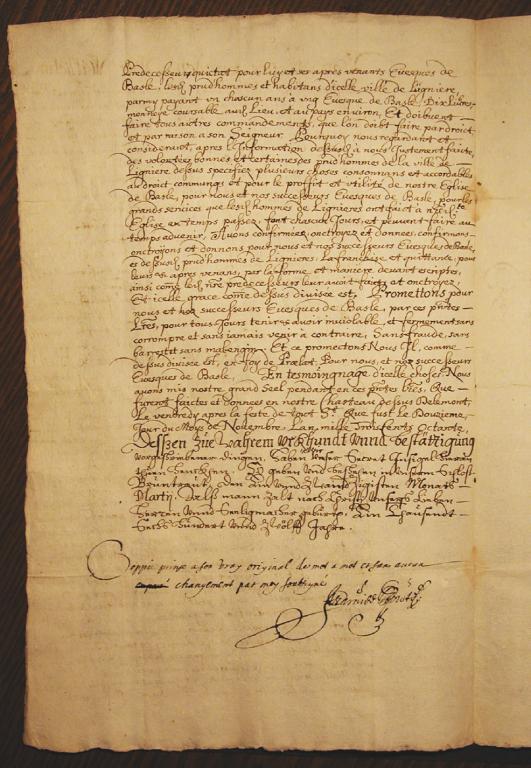 Predecesseurs quictat pour luy et ses après venants Evesques de
Basle, lesd. prud'hommes et habitans d'icelle ville de Lignière,
parmy payant un chascun ans a ung Evesque de Basle, Dix Livres
monnoye coursable aud. Lieu, et au pays environ, Et doibvent
faire tous aultres commandements, que lon doibt faire par droict
et par raison a son Seigneur. Pourquoy nous regardant et
considerant, apres l'Information dessusd. a nous justement faicte,
des volontez bonnes et certaines des prud'hommes de la ville de
Ligniere dessus specifiez, plusieurs choses consonnans et accordables
au droit communqs et pour le proffit et utilité de nostre Eglise
de Basle, pour nous et nos successeurs Evesques de Basle, pour les
grands services que lesd. hommes de Lignieres ont faict a nred.
Eglise ex temps passez, font chascun Jours, et peuvent faire au
temps advenir, Avons confirmez, onctroyez et donnez, confirmons
onctroyons et donnons pour nous et nos successeurs Evesques de Basle,
es dessusd. prud'hommes de Lignieres, la franchise et quittance, pour
leurs apres venans, par la forme et maniere devant escriptes,
ainsi come lesd. nre predecesseurs leur avoit faictz et onctroyez,
Et icelle grace come dessus divisée est, Promettons pour
nous et noz successeurs Evesques de Basle, par ces pntes
Lres, pour tous Jours tenir et avoir inviolable, et fermement sans
corrompre et sans jamais venir a contraire, Sans fraude, sans
barrat et sans malengin, Et ce promectons Nous Jl, comme
dessus divisée est, en foy de Prelat, Pour nous, et noz successeurs
Evesques de Basle, En tesmoingnage d'icelle choses, Nous
avons mis nostre grand Seel pendant en ces pntes lres, Que
furent faictes et données en nostre Chasteau dessus Delemont,
Le vendredy apres la feste de
Jour du Moys de Novembre, Lan mille Troiscentz Octante,
Dessen zue Wahrem Urckhundt unnd Bestättigung
Dingen, Haben wir unser Secret Insigel
thun henckhen, So geben und beschehen in unserm Schloss
Brunntrautt, den ein unnd Zwantzigisten Monats
Martij, Alss mann Zalt nach Christj unsers Lieben
Herren unnd Seeligmachers geburtt, Ein Thausendt
Sechs hundert unnd Zwölff Jahre.
Coppie prinse a son vray original de mot a mot et sans aucun
changement par moy soubsigné